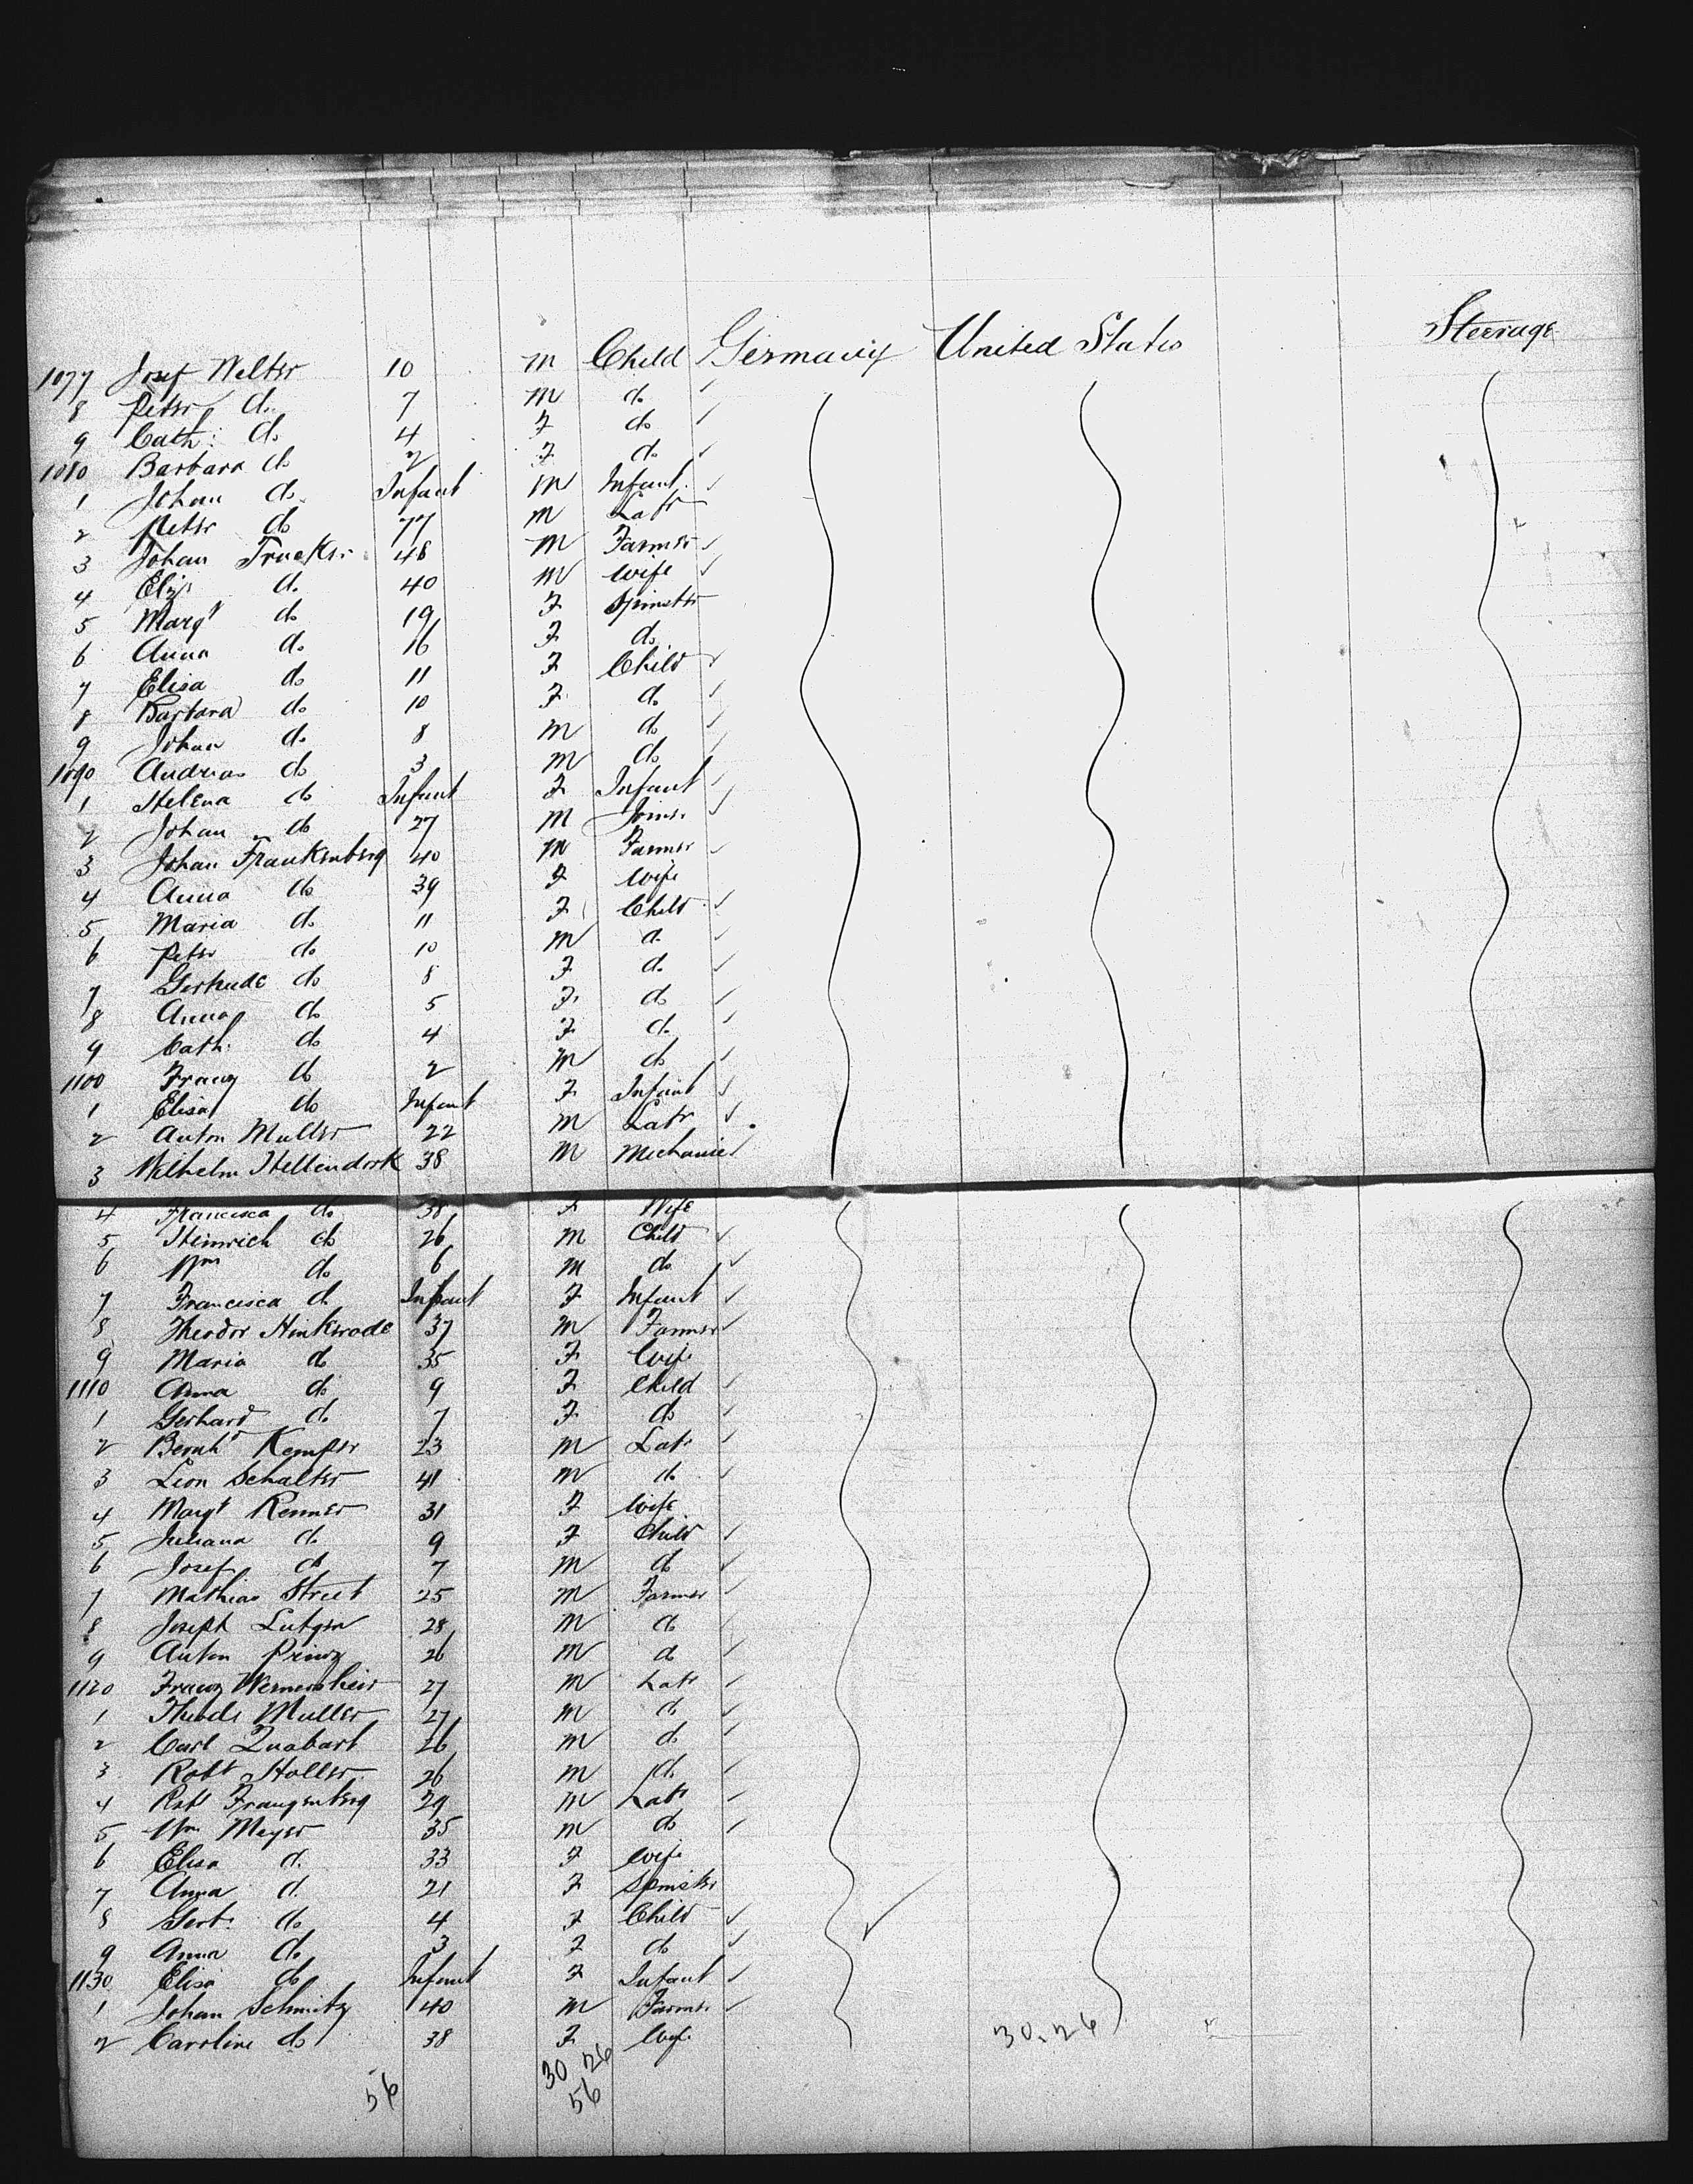 1077 Josef Welter 10 M Child Germany United States Steerage
8 Peter do 7 M do
9 Cath: do 4 F do
1080 Barbara do 2 F do
1 Johan do Infant M Infant
2 Peter do 77 M Labr
3 Johan 48 M Farmer
4 Eliz: do 40 M Wife
5 Margt do 19 F Spinster
6 Anna do 16 F do
7 Elisa do 11 F Child
8 Barbara do 10 F do
9 Johan do 8 M do
1090 Andreas do 3 M do
1 Helena do Infant F Infant
2 Johan do 27 M Joiner
3 Johan Frankenberg 40 M Farmer
4 Anna do 39 F Wife
5 Maria do 11 F Child
6 Peter do 10 M do
7 Gertrude do 8 F do
8 Anna do 5 F do
9 Cath: do 4 F do
1100 Franz do 2 M do
1 Elisa do Infant F Infant
2 Anton Muller 22 M Labr
3 Wilhelm Hellendork 38 M Mechanic
4 Francisca do 38 F Wife
5 Heinrich do 26 M Child
6 Wm do 6 M do
7 Francisca do Infant F Infant
8 Theodor Hinkerode 37 M Farmer
9 Maria do 35 F Wife
1110 Anna do 9 F Child
1 Gerhard do 7 F do
2 Bernhd Kemper 23 M Labr
3 Leon Schalter 41 M do
4 Margt Renner 31 F Wife
5 Juliana do 9 F Child
6 Josef do 7 M do
7 Mathias Street 25 M Farmer
8 Joseph Lutgen 28 M do
9 Anton Prinz 26 M do
1120 Franz 27 M Labr
1 Muller 27 M do
2 Carl Quabart 26 M do
3 Robt Holler 26 M do
4 Robt Frangenberg 29 M Labr
5 Wm Meyer 35 M do
6 Elisa do 33 F Wife
7 Anna do 21 F Spinster
8 Gert: do 4 F Child
9 Anna do 3 F do
1130 Elisa do Infant F Infant
1 Johan Schmitz 40 M Farmer
2 Caroline do 38 F Wife 30.26
30 26
56 56